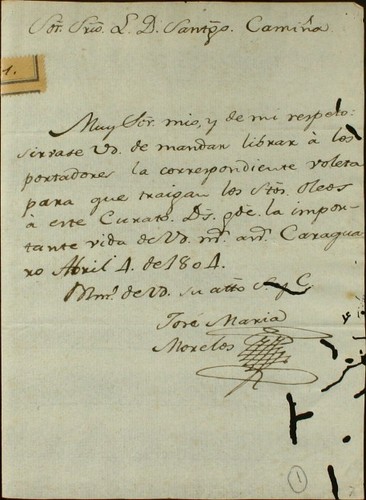 Sor. Srio. L. D. Santgo. Camiña.
1.
Muy Sor. mio, y de mi respeto:
sirvase Vd. de mandar librar â los
portadores la correspondiente voleta
para que traigan los Stos. Oleos
â este Curato. Ds. gde. la impor-
tante vida de Vd. ms. as. Caraqua-
ro Abril 4. de 1804.
B. m. de Vd. su atto. S. y C.
José Maria
Morelos
1